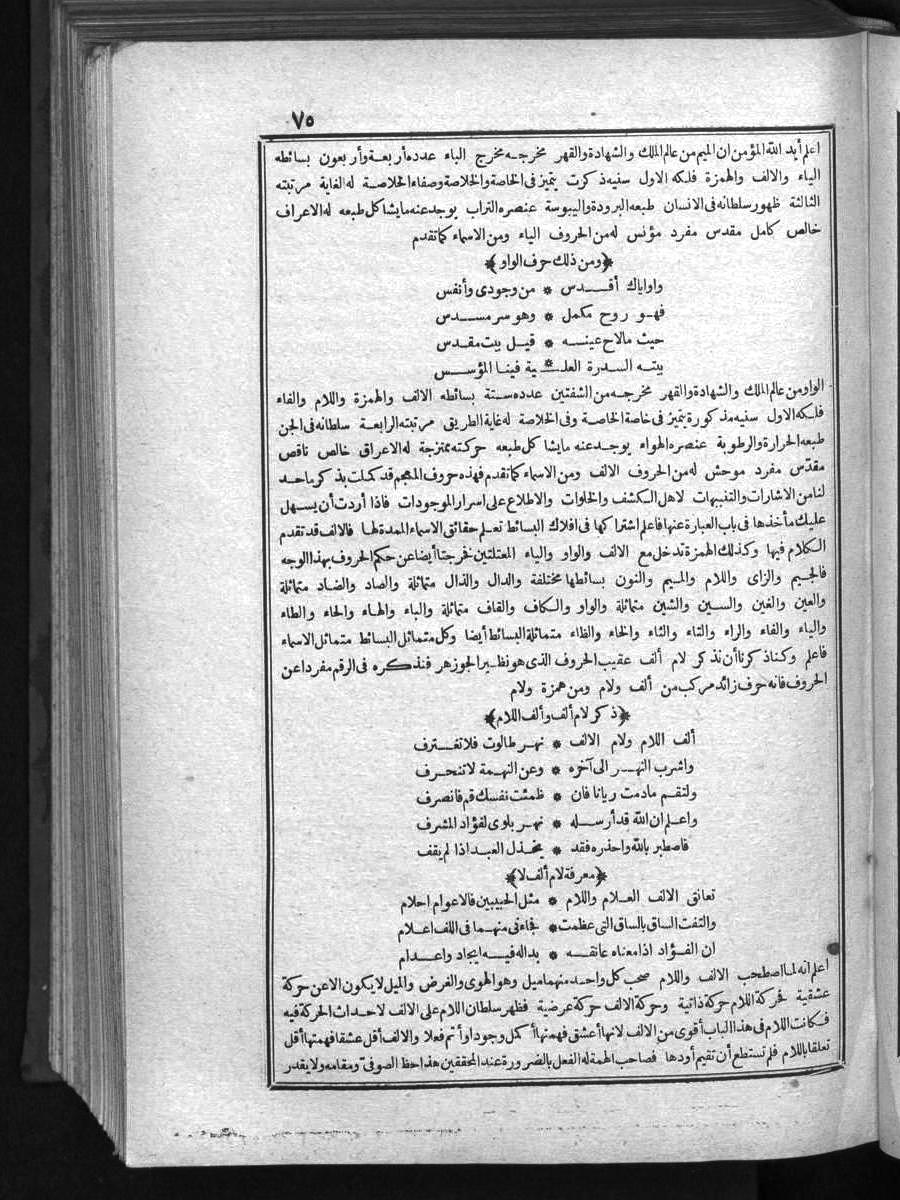 ٧٥
اعلم أيد الله المؤمن ان الميم من عالم الملك والشهادة والقهر مخرجه مخرج الباء عدده أربعة وأربعون بسائطه
الياء والالف والهمزة فلكه الاول سنيه ذكرت يتميز فى الخاصة والخلاصة وصفاء الخلاصة له الغاية مرتبته
الثالثة ظهور سلطانه فى الانسان طبعه البرودة واليبوسة عنصره التراب يوجد عنه ما يشاكل طبعه له الاعراف
خالص كامل مقدس مفرد مؤنس له من الحروف الياء ومن الاسماء كما تقدم
﴿ومن ذلك حرف الواو﴾
واو اياك أقدس * من وجودى وأنفس
فهو روح مكمل * وهو سر مسدس
حيث ما لاح عينه * قيل بيت مقدس
بيته السدرة العلـ * ـية فينا المؤسس
الواو من عالم الملك والشهادة والقهر مخرجه من الشفتين عدده ستة بسائطه الالف والهمزة واللام والفاء
فلكه الاول سنيه مذكورة يتميز فى خاصة الخاصة وفى الخلاصة له غاية الطريق مرتبته الرابعة سلطانه فى الجن
طبعه الحرارة والرطوبة عنصره الهواء يوجد عنه ما يشاكل طبعه حركته ممتزجة له الاعراق خالص ناقص
مقدّس مفرد موحش له من الحروف الالف ومن الاسماء كما تقدم فهذه حروف المعجم قد كملت بذكر ما حد
لنا من الاشارات والتنبيهات لاهل الكشف والخلوات والاطلاع على اسرار الموجودات فاذا أردت أن يسهل
عليك مأخذها فى باب العبارة عنها فاعلم اشتراكها فى افلاك البسائط تعلم حقائق الاسماء الممدة لها فالالف قد تقدم
الكلام فيها وكذلك الهمزة تدخل مع الالف والواو والياء المعتلتين فخرجتا أيضا عن حكم الحروف بهذا الوجه
فالجيم والزاى واللام والميم والنون بسائطها مختلفة والدال والذال متماثلة والصاد والضاد متماثلة
والعين والغين والسين والشين متماثلة والواو والكاف والقاف متماثلة والباء والهاء والحاء والطاء
والياء والفاء والراء والتاء والثاء والخاء والظاء متماثلة البسائط أيضا وكل متماثل البسائط متماثل الاسماء
فاعلم وكنا ذكرنا أن نذكر لام ألف عقيب الحروف الذى هو نظير الجوزهر فنذكره فى الرقم مفردا عن
الحروف فانه حرف زائد مركب من ألف ولام ومن همزة ولام
﴿ذكر لام ألف وألف اللام﴾
ألف اللام ولام الالف * نهر طالوت فلا تغترف
واشرب النهر الى آخره * وعن النهمة لا تنحرف
ولتقم ما دمت ريانا فان * ظمئت نفسك قم فانصرف
واعلم ان الله قد أرسله * نهر بلوى لفؤاد المشرف
فاصطبر بالله واحذره فقد * يخذل العبد اذا لم يقف
﴿معرفة لام ألف لا﴾
تعانق الالف العلام واللام * مثل الحبيبين فالاعوام احلام
والتفت الساق بالساق التى عظمت * فجاءنى منهما فى اللف اعلام
ان الفؤاد اذا معناه عانقه * بداله فيه ايجاد واعدام
اعلم انه لما اصطحب الالف واللام صحب كل واحد منهما ميل وهو الهوى والغرض والميل لا يكون الا عن حركة
عشقية فحركة اللام حركة ذاتية وحركة الالف حركة عرضية فظهر سلطان اللام على الالف لاحداث الحركة فيه
فكانت اللام فى هذا الباب أقوى من الالف لانها أعشق فهمتها أكمل وجودا وأتم فعلا والالف أقل عشقا فهمتها أقل
تعلقا باللام فلم تستطع أن تقيم أودها فصاحب الهمة له الفعل بالضرورة عند المحققين هذا حظ الصوفىّ ومقامه ولا يقدر